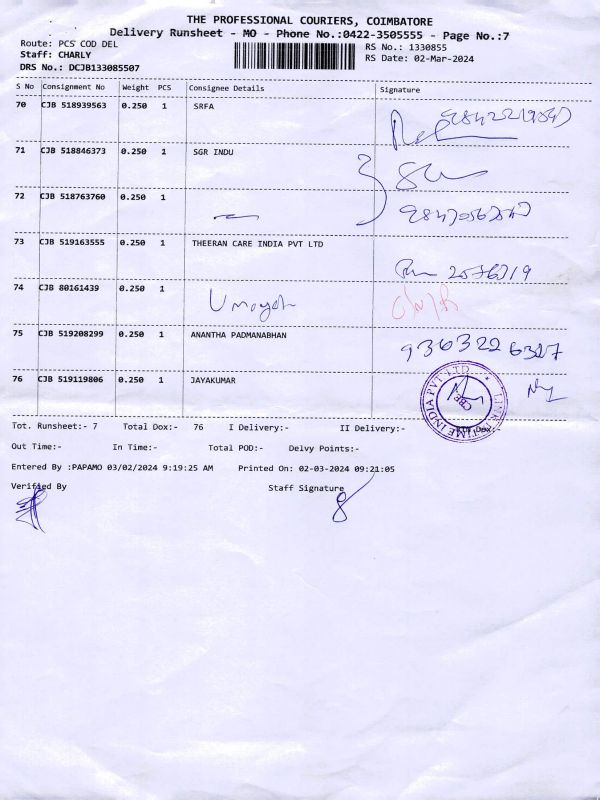 THE PROFESSIONAL COURIERS, COIMBATORE
Delivery Runsheet - MO - Phone No.:0422-3505555 - Page No.:7
Route: PCS COD DEL
RS No.: 1330855
Staff: CHARLY
RS Date: 02-Mar-2024
DRS No.: DCJB133085507
S No Consignment No Weight PCS Consignee Details Signature
70 CJB 518939563 0.250 1 SRFA
71 CJB 518846373 0.250 1 SGR INDU
72 CJB 518763760 0.250 1
73 CJB 519163555 0.250 1 THEERAN CARE INDIA PVT LTD
74 CJB 80161439 0.250 1
75 CJB 519208299 0.250 1 ANANTHA PADMANABHAN
76 CJB 519119806 0.250 1 JAYAKUMAR
LINK TIME INDIA PVT LTD.
CBE
Tot. Runsheet:- 7 Total Dox:- 76 I Delivery:- II Delivery:- Dox:-
Out Time:- In Time:- Total POD:- Delvy Points:-
Entered By :PAPAMO 03/02/2024 9:19:25 AM Printed On: 02-03-2024 09:21:05
Verified By Staff Signature